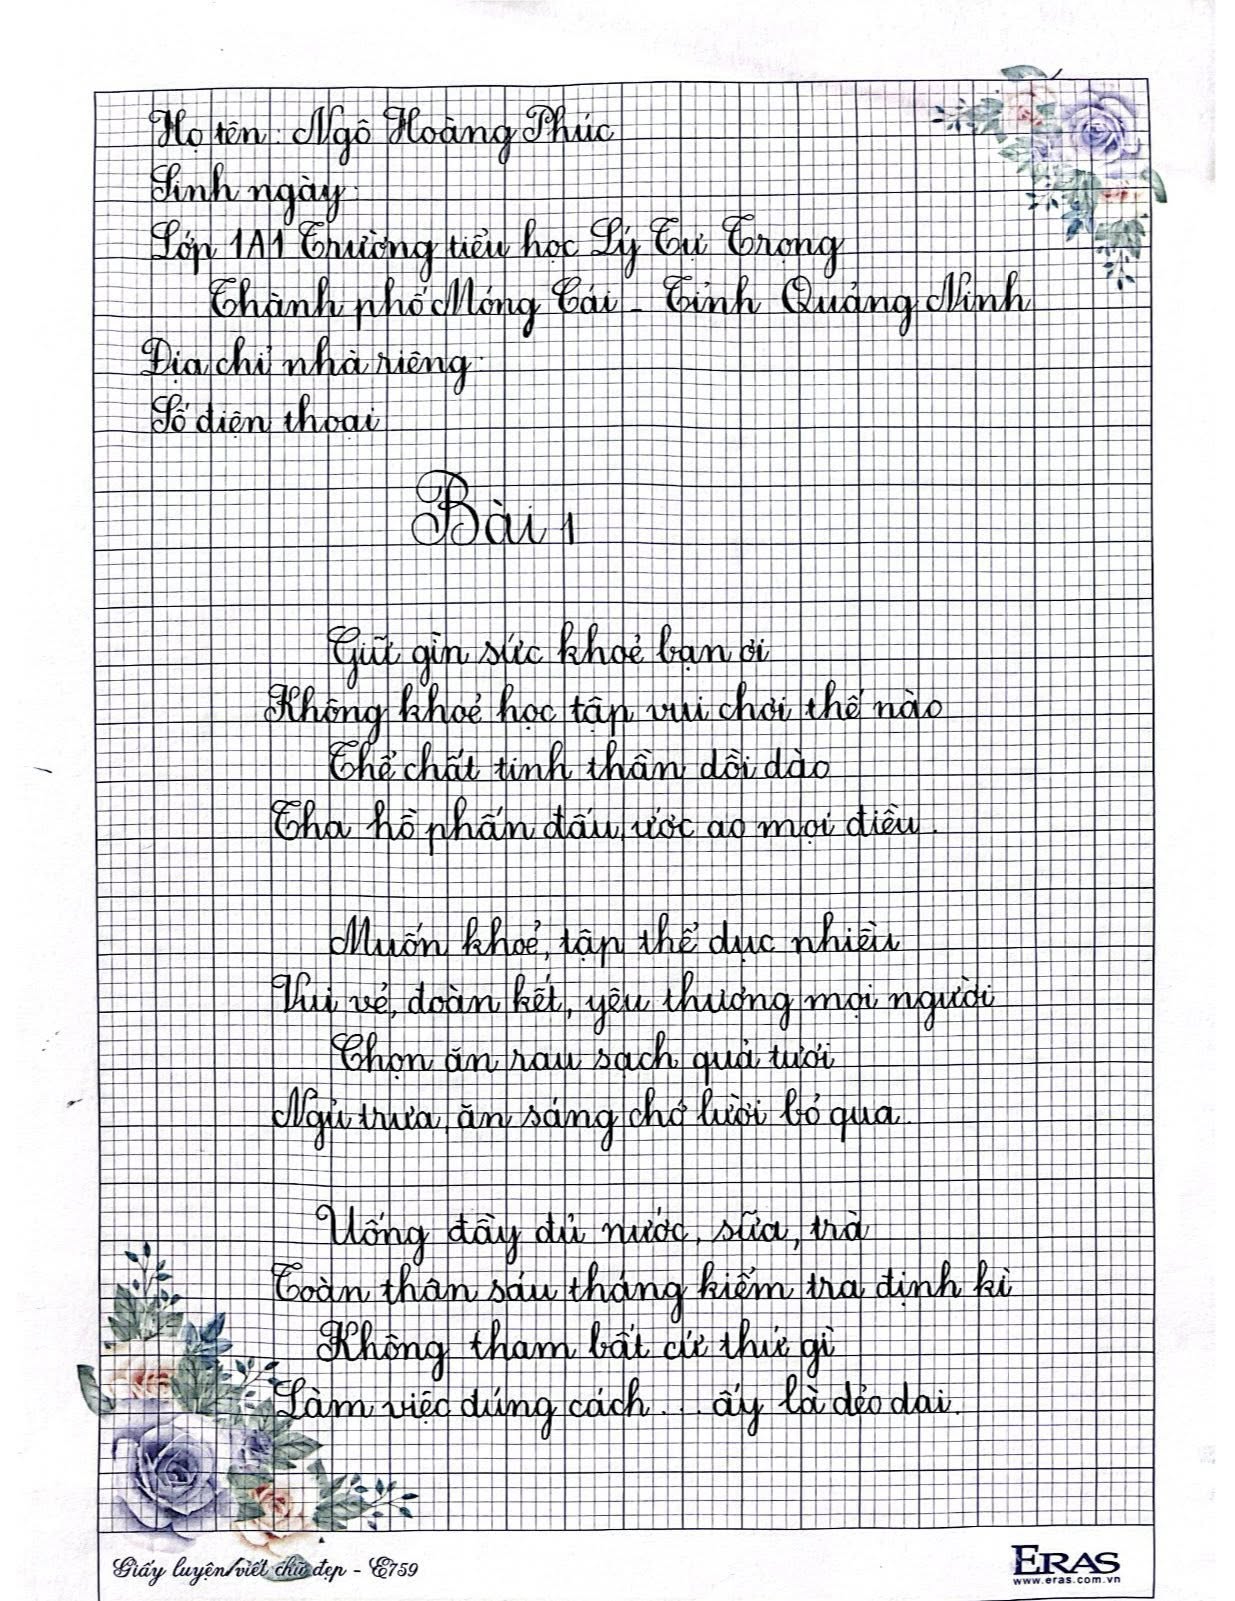 Họ tên: Ngô Hoàng Phúc
Sinh ngày:
Lớp 1A1 Trường tiểu học Lý Tự Trọng
Thành phố Móng Cái - Tỉnh Quảng Ninh
Địa chỉ nhà riêng:
Số điện thoại
Bài 1
Giữ gìn sức khoẻ bạn ơi
Không khoẻ học tập vui chơi thế nào
Thể chất tinh thần dồi dào
Tha hồ phấn đấu, ước ao mọi điều.
Muốn khoẻ, tập thể dục nhiều
Vui vẻ, đoàn kết, yêu thương mọi người
Chọn ăn rau sạch quả tươi
Ngủ trưa, ăn sáng chớ lười bỏ qua.
Uống đầy đủ nước, sữa, trà
Toàn thân sáu tháng kiểm tra định kì
Không tham bất cứ thứ gì
Làm việc đúng cách... ấy là dẻo dai.
Giấy luyện viết chữ đẹp - E759
ERAS
www.eras.com.vn